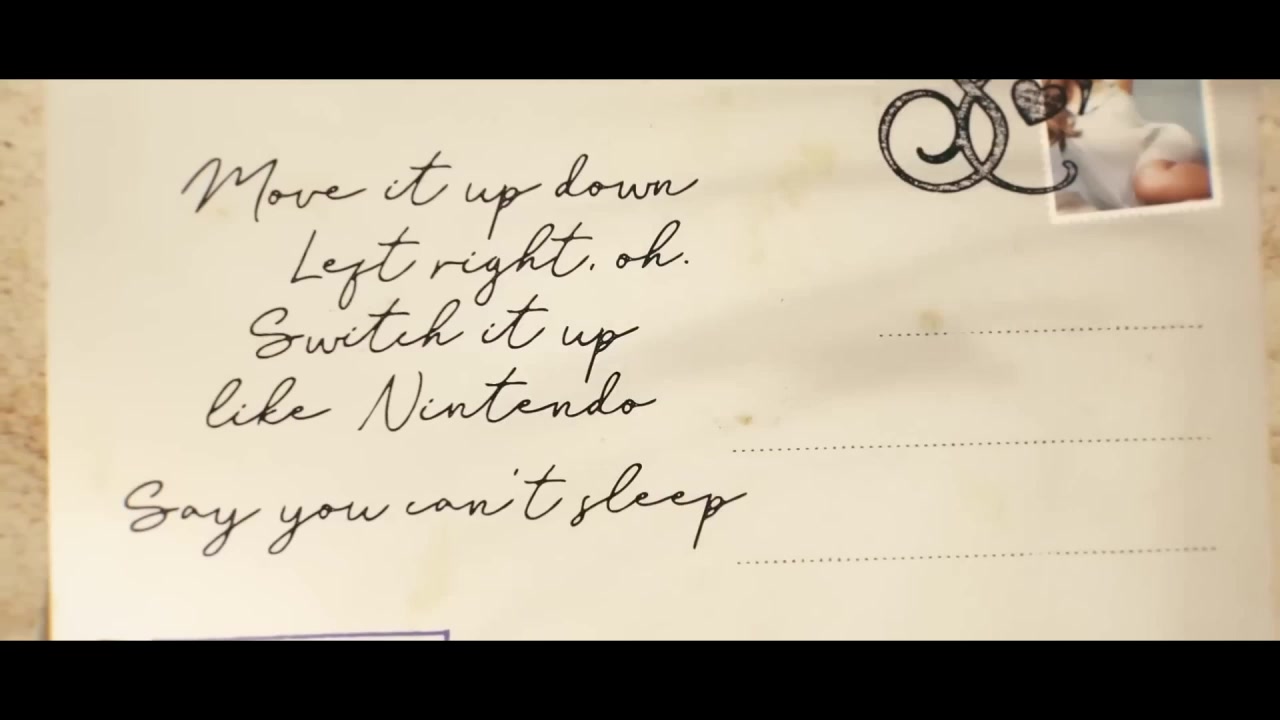 Move it up down
Left right, oh.
Switch it up
like Nintendo
Say you can't sleep